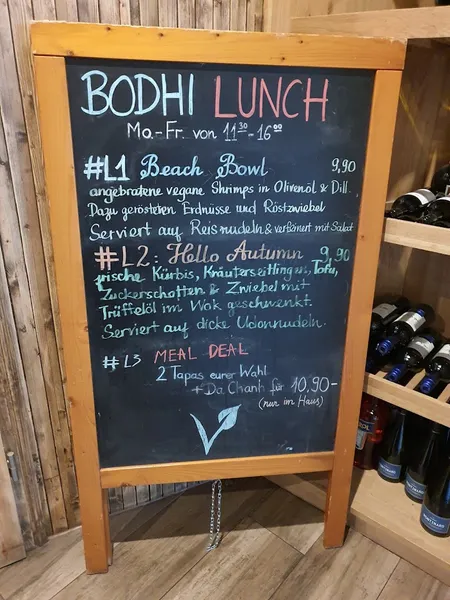 BODHI LUNCH
Mo.-Fr. von 11³⁰-16⁰⁰
#L1 Beach Bowl 9,90
angebratene vegane Shrimps in Olivenöl & Dill.
Dazu gerösteten Erdnüsse und Röstzwiebel
Serviert auf Reisnudeln & verfeinert mit Salat
#L2: Hello Autumn 9,90
frische Kürbis, Kräuterseitlingen, Tofu,
Zuckerschotten & Zwiebel mit
Trüffelöl im Wok geschwenkt.
Serviert auf dicke Udonnudeln.
#L3 MEAL DEAL
2 Tapas eurer Wahl
+ Da Chanh für 10,90-
(nur im Haus)